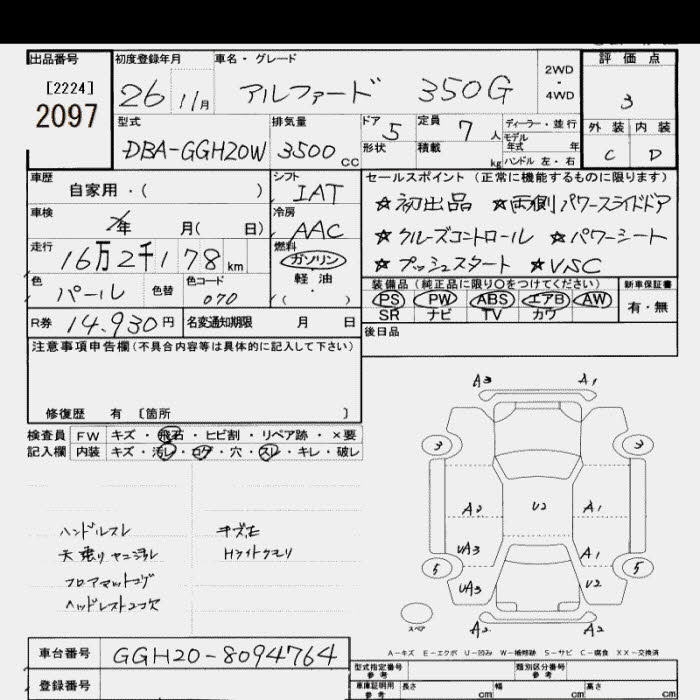 出品番号 初度登録年月 車名・グレード 2WD・4WD 評価点
[2224]
2097
26 11月 アルファード 350G 3
型式 排気量 ドア 5 定員 7人 ディーラー・並行 外装 内装
DBA-GGH20W 3500cc 形状 積載 kg モデル年式 年 ハンドル 左・右 C D
車歴 シフト セールスポイント (正常に機能するものに限ります)
自家用・( ) IAT ☆初出品 ☆両側パワースライドドア
車検 年 月( 日) 冷房 AAC ☆クルーズコントロール ☆パワーシート
走行 16万2千178km 燃料 ガソリン 軽油 ( ) ☆プッシュスタート ☆VSC
色 パール 色替 色コード 070 装備品 (純正品に限り○をつけてください) 新車保証書
PS PW ABS エアB AW 有・無
SR ナビ TV カワ
R券 14,930円 名変通知期限 月 日 後日品
注意事項申告欄 (不具合内容等は具体的に記入して下さい)
修復歴 有 〔箇所 〕
検査員 FW キズ・飛石・ヒビ割・リペア跡・×要
記入欄 内装 キズ・汚レ・コゲ・穴・スレ・キレ・破レ
ハンドルスレ キズ左
天張りヤニ汚レ Hライトクモリ
フロアマットコゲ
ヘッドレスト2コ欠
A3 A1
3 3
A2 U2 A1
UA3 A1
5 5
UA3 U2
スペア A2 A2
A-キズ E-エクボ U-凹み W-補修跡 S-サビ C-腐食 XX-交換済
車台番号 GGH20-8094764
登録番号
型式指定番号 参考 類別区分番号 参考
車庫証明用 参考 長さ cm 幅 cm 高さ cm